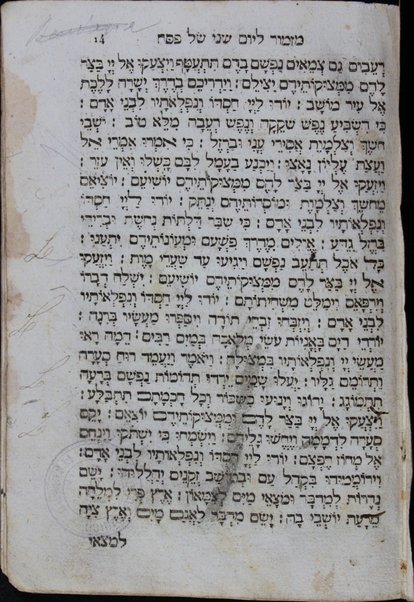 14 מזמור ליום שני של פסח
רְעֵבִים גַּם צְמֵאִים נַפְשָׁם בָּהֶם תִּתְעַטָּף׃ וַיִּצְעֲקוּ אֶל יְיָ בַּצַּר
לָהֶם מִמְּצוּקוֹתֵיהֶם יַצִּילֵם׃ וַיַּדְרִיכֵם בְּדֶרֶךְ יְשָׁרָה לָלֶכֶת
אֶל עִיר מוֹשָׁב׃ יוֹדוּ לַיְיָ חַסְדּוֹ וְנִפְלְאוֹתָיו לִבְנֵי אָדָם׃
כִּי הִשְׂבִּיעַ נֶפֶשׁ שֹׁקֵקָה וְנֶפֶשׁ רְעֵבָה מִלֵּא טוֹב׃ יֹשְׁבֵי
חֹשֶׁךְ וְצַלְמָוֶת אֲסִירֵי עֳנִי וּבַרְזֶל׃ כִּי הִמְרוּ אִמְרֵי אֵל
וַעֲצַת עֶלְיוֹן נָאָצוּ׃ וַיַּכְנַע בֶּעָמָל לִבָּם כָּשְׁלוּ וְאֵין עֹזֵר׃
וַיִּזְעֲקוּ אֶל יְיָ בַּצַּר לָהֶם מִמְּצוּקוֹתֵיהֶם יוֹשִׁיעֵם׃ יוֹצִיאֵם
מֵחֹשֶׁךְ וְצַלְמָוֶת וּמוֹסְרוֹתֵיהֶם יְנַתֵּק׃ יוֹדוּ לַיְיָ חַסְדּוֹ
וְנִפְלְאוֹתָיו לִבְנֵי אָדָם׃ כִּי שִׁבַּר דַּלְתוֹת נְחֹשֶׁת וּבְרִיחֵי
בַרְזֶל גִּדֵּעַ׃ אֱוִילִים מִדֶּרֶךְ פִּשְׁעָם וּמֵעֲוֹנוֹתֵיהֶם יִתְעַנּוּ׃
כָּל אֹכֶל תְּתַעֵב נַפְשָׁם וַיַּגִּיעוּ עַד שַׁעֲרֵי מָוֶת׃ וַיִּזְעֲקוּ
אֶל יְיָ בַּצַּר לָהֶם מִמְּצוּקוֹתֵיהֶם יוֹשִׁיעֵם׃ יִשְׁלַח דְּבָרוֹ
וְיִרְפָּאֵם וִימַלֵּט מִשְּׁחִיתוֹתָם׃ יוֹדוּ לַיְיָ חַסְדּוֹ וְנִפְלְאוֹתָיו
לִבְנֵי אָדָם׃ וְיִזְבְּחוּ זִבְחֵי תוֹדָה וִיסַפְּרוּ מַעֲשָׂיו בְּרִנָּה׃
יוֹרְדֵי הַיָּם בָּאֳנִיּוֹת עֹשֵׂי מְלָאכָה בְּמַיִם רַבִּים׃ הֵמָּה רָאוּ
מַעֲשֵׂי יְיָ וְנִפְלְאוֹתָיו בִּמְצוּלָה׃ וַיֹּאמֶר וַיַּעֲמֵד רוּחַ סְעָרָה
וַתְּרוֹמֵם גַּלָּיו׃ יַעֲלוּ שָׁמַיִם יֵרְדוּ תְהוֹמוֹת נַפְשָׁם בְּרָעָה
תִתְמוֹגָג׃ יָחוֹגּוּ וְיָנוּעוּ כַּשִּׁכּוֹר וְכָל חָכְמָתָם תִּתְבַּלָּע׃
וַיִּצְעֲקוּ אֶל יְיָ בַּצַּר לָהֶם וּמִמְּצוּקוֹתֵיהֶם יוֹצִיאֵם׃ יָקֵם
סְעָרָה לִדְמָמָה וַיֶּחֱשׁוּ גַּלֵּיהֶם׃ וַיִּשְׂמְחוּ כִי יִשְׁתֹּקוּ וַיַּנְחֵם
אֶל מְחוֹז חֶפְצָם׃ יוֹדוּ לַיְיָ חַסְדּוֹ וְנִפְלְאוֹתָיו לִבְנֵי אָדָם׃
וִירוֹמְמוּהוּ בִּקְהַל עָם וּבְמוֹשַׁב זְקֵנִים יְהַלְלוּהוּ׃ יָשֵׂם
נְהָרוֹת לְמִדְבָּר וּמוֹצָאֵי מַיִם לְצִמָּאוֹן׃ אֶרֶץ פְּרִי לִמְלֵחָה
מֵרָעַת יוֹשְׁבֵי בָהּ׃ יָשֵׂם מִדְבָּר לַאֲגַם מַיִם וְאֶרֶץ צִיָּה
למצאי